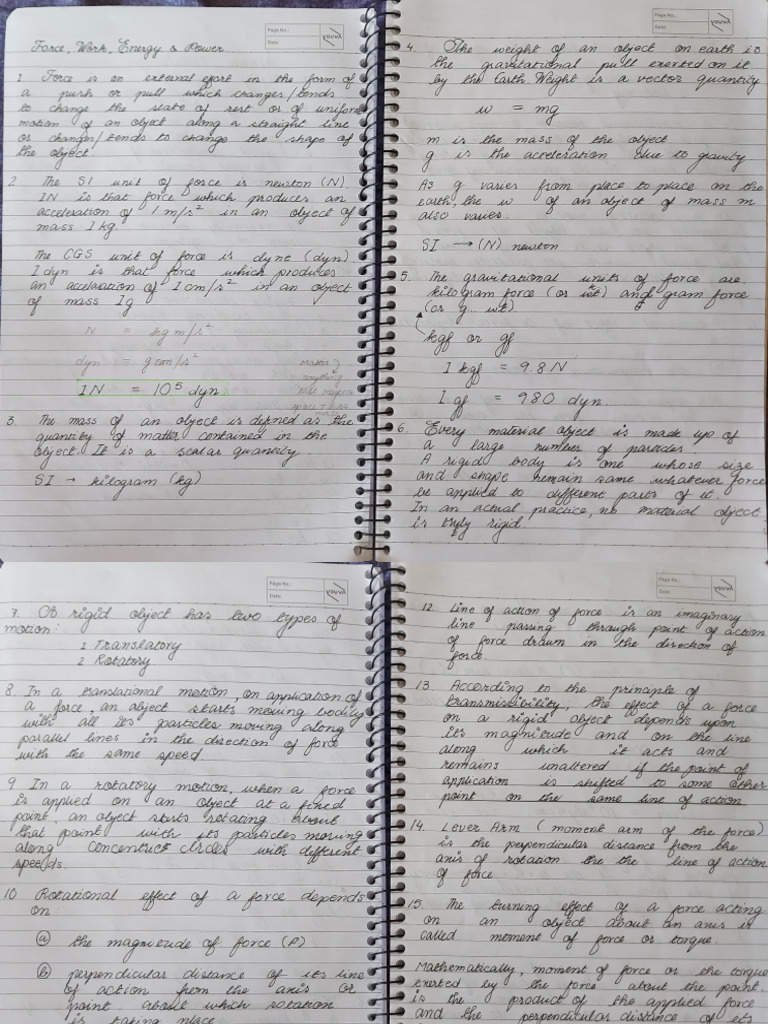 Page No.:
Date:
YOUVA
Force, Work, Energy & Power
1. Force is an external effort in the form of
a push or pull which changes/tends
to change the state of rest or of uniform
motion of an object along a straight line
or changes/tends to change the shape of
the object
2. The SI unit of force is newton (N).
1N is that force which produces an
acceleration of 1 m/s² in an object of
mass 1 kg.
The CGS unit of force is dyne (dyn).
1 dyn is that force which produces
an acceleration of 1 cm/s² in an object
of mass 1g
N = kg m/s²
dyn = g cm/s²
1N = 10⁵ dyn
matter
anything
that
3. The mass of an object is defined as the
quantity of matter contained in the
object. It is a scalar quantity.
SI → kilogram (kg)
Page No.:
Date:
YOUVA
4. The weight of an object on earth is
the gravitational pull exerted on it
by the Earth. Weight is a vector quantity
w = mg
m is the mass of the object
g is the acceleration due to gravity
As g varies from place to place on the
earth, the w of an object of mass m
also varies.
SI → (N) newton
5. The gravitational units of force are
kilogram force (or wt) and gram force
(or g. wt).
kgf or gf
1 kgf = 9.8 N
1 gf = 980 dyn.
6. Every material object is made up of
a large number of particles.
A rigid body is one whose size
and shape remain same whatever force
be applied to different parts of it.
In an actual practice, no material object
is truly rigid.
Page No.:
Date:
YOUVA
7. A rigid object has two types of
motion:
1 Translatory
2 Rotatory
8. In a translational motion, on application of
a force, an object starts moving bodily
with all its particles moving along
parallel lines in the direction of force
with the same speed.
9 In a rotatory motion, when a force
is applied on an object at a fixed
point, an object starts rotating about
that point with its particles moving
along concentric circles with different
speeds.
10 Rotational effect of a force depends
on:
(a) the magnitude of force (F)
(b) perpendicular distance of its line
of action from the axis or
point about which rotation
is taking place
Page No.:
Date:
YOUVA
12. Line of action of force is an imaginary
line passing through point of action
of force drawn in the direction of
force
13. According to the principle of
transmissibility, the effect of a force
on a rigid object depends upon
its magnitude and on the line
along which it acts and
remains unaltered if the point of
application is shifted to some other
point on the same line of action
14. Lever Arm (moment arm of the force)
is the perpendicular distance from the
axis of rotation the the line of action
of force
15. The turning effect of a force acting
on an object about an axis is
called moment of force or torque.
Mathematically, moment of force or the torque
exerted by the force about the point.
is the product of the applied force
and the perpendicular distance of its